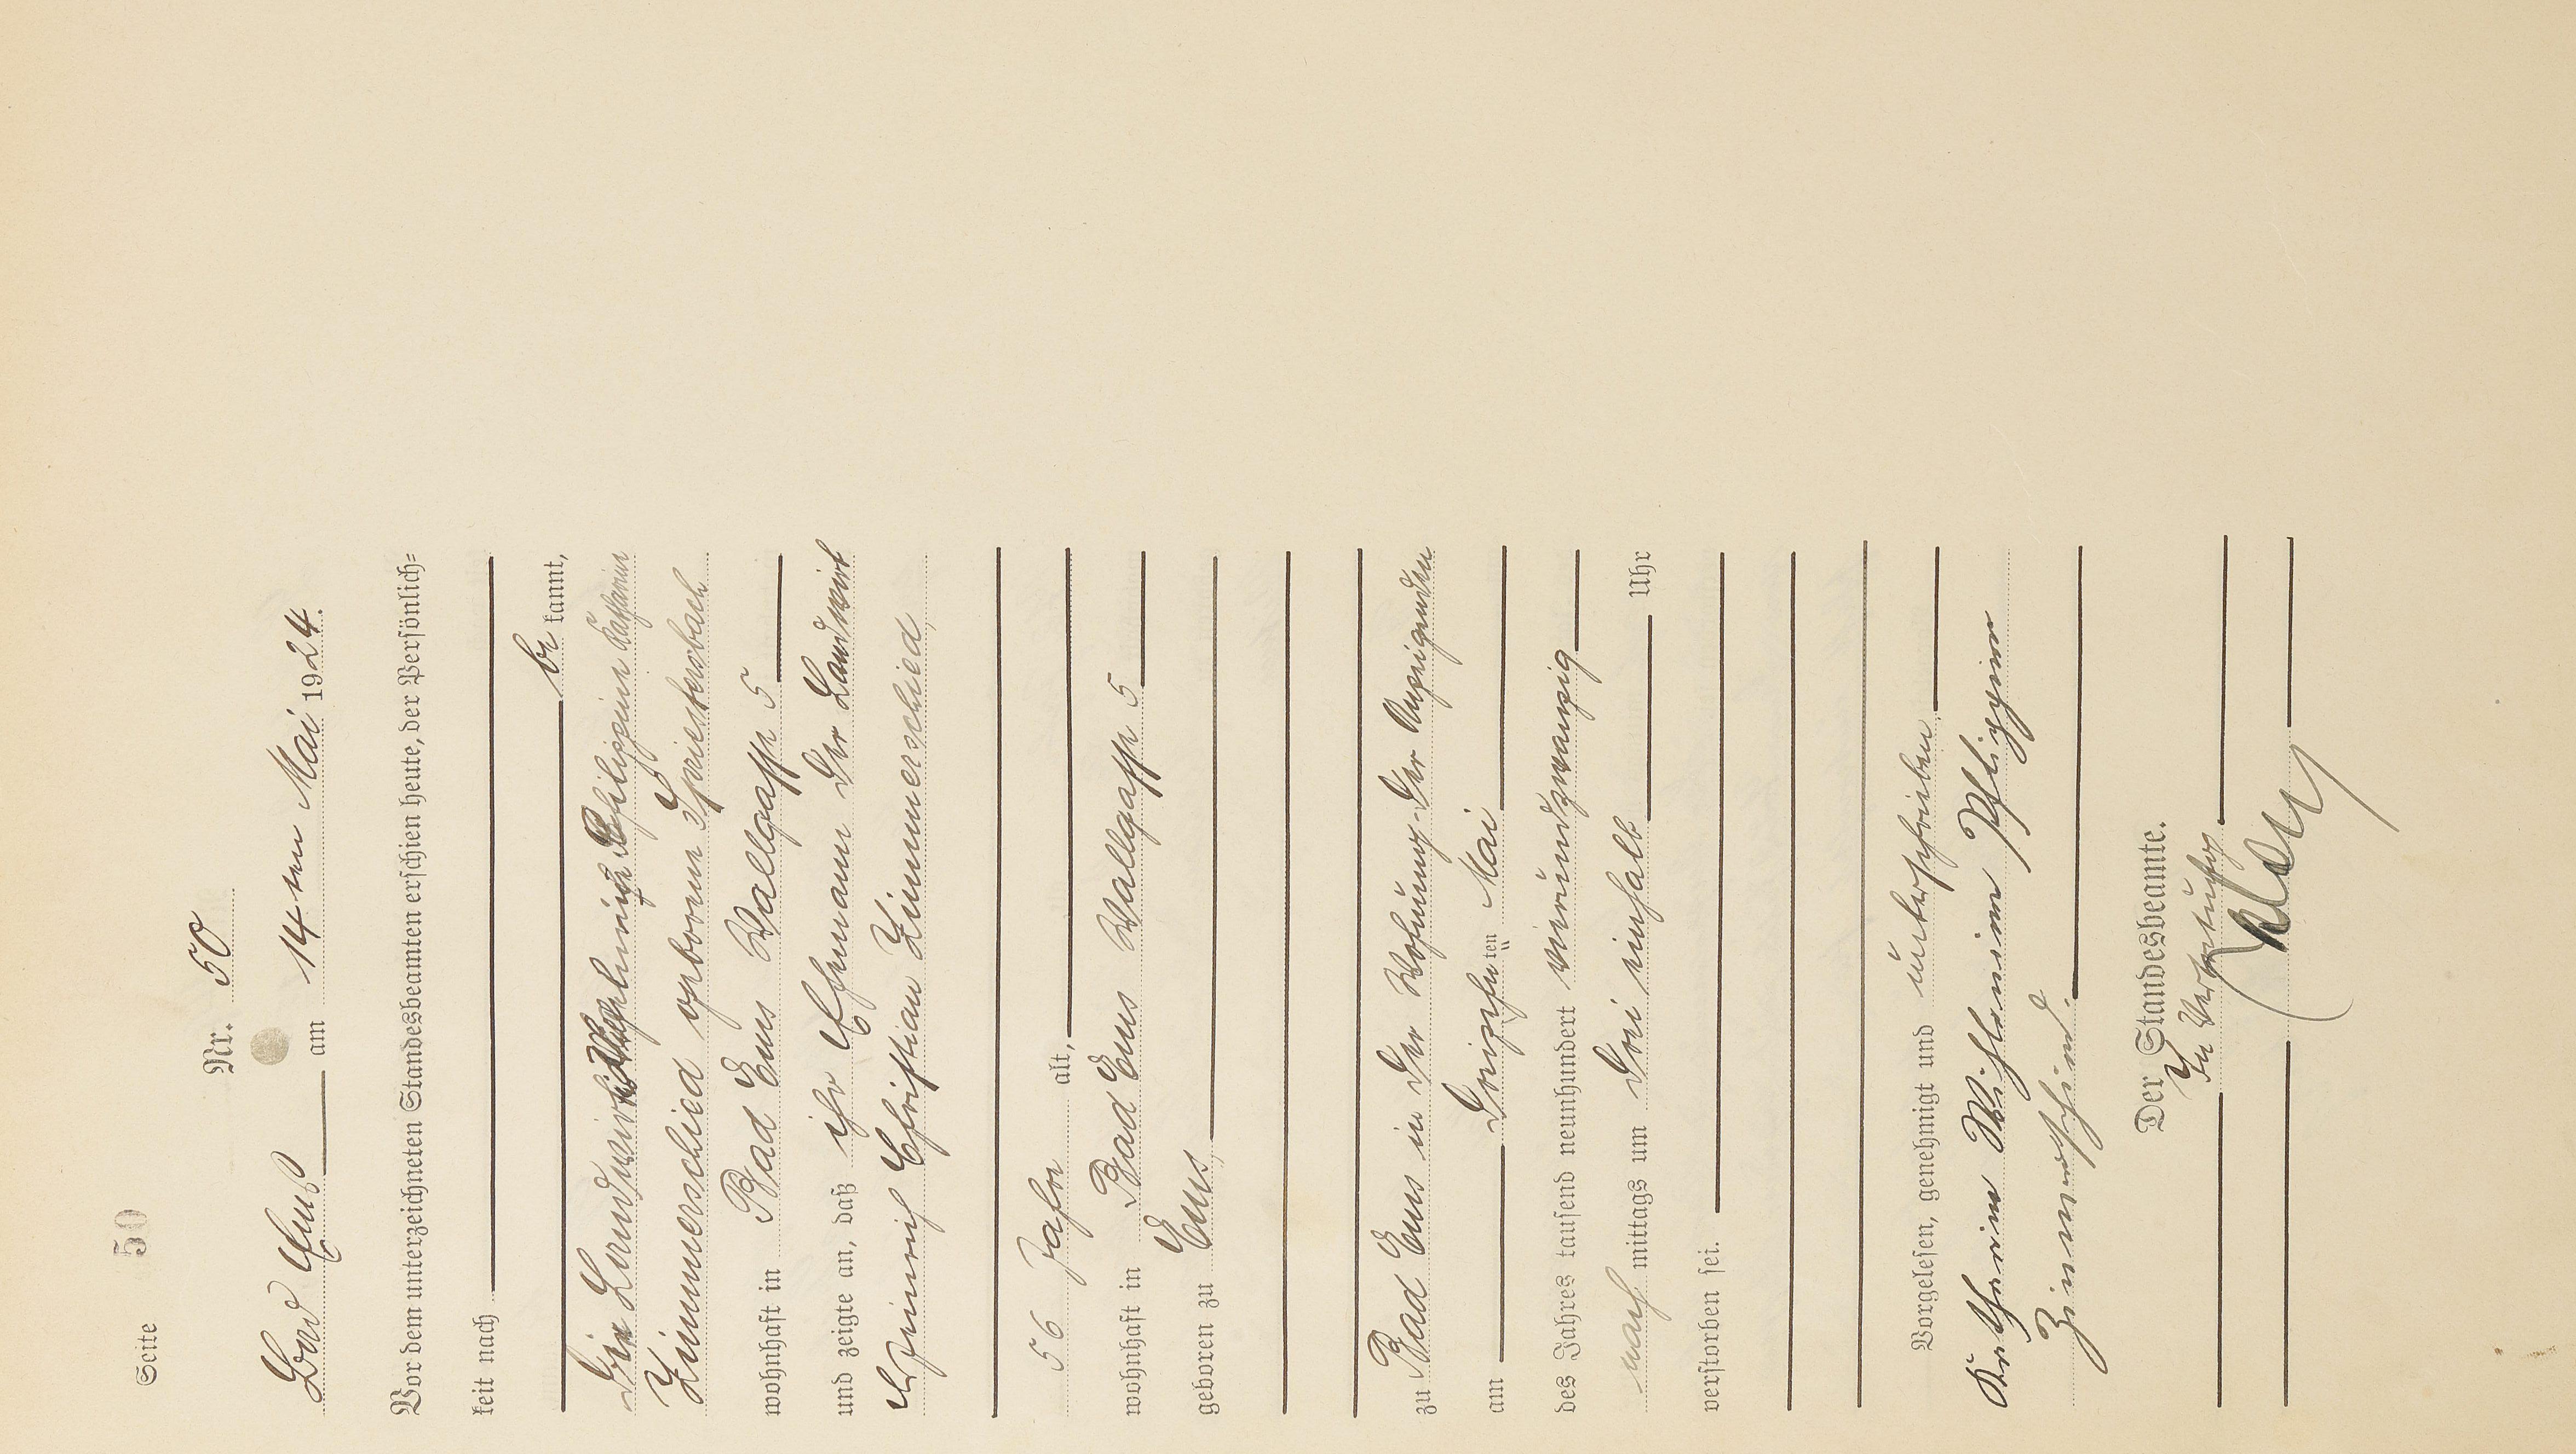 Seite 50
Nr. 50
Bad Ems am 14ten Mai 1924.
Vor dem unterzeichneten Standesbeamten erschien heute, der Persönlich=
keit nach
be kannt,
die Landwirtin Wilhelmine Philippine Katharine
Zimmerschied geborene Spriestersbach
wohnhaft in Bad Ems Wallgasse 5
und zeigte an, daß ihr Ehemann der Landwirt
Heinrich Christian Zimmerschied,
56 Jahre alt,
wohnhaft in Bad Ems Wallgasse 5
geboren zu Ems,
zu Bad Ems in der Wohnung der Anzeigenden
am dreizehnten Mai
des Jahres tausend neunhundert vierundzwanzig
nach mittags um drei einhalb Uhr
verstorben sei.
Vorgelesen, genehmigt und unterschrieben
Katharina Wilhelmine Philippine
Zimmerschied.
Der Standesbeamte.
In Vertretung